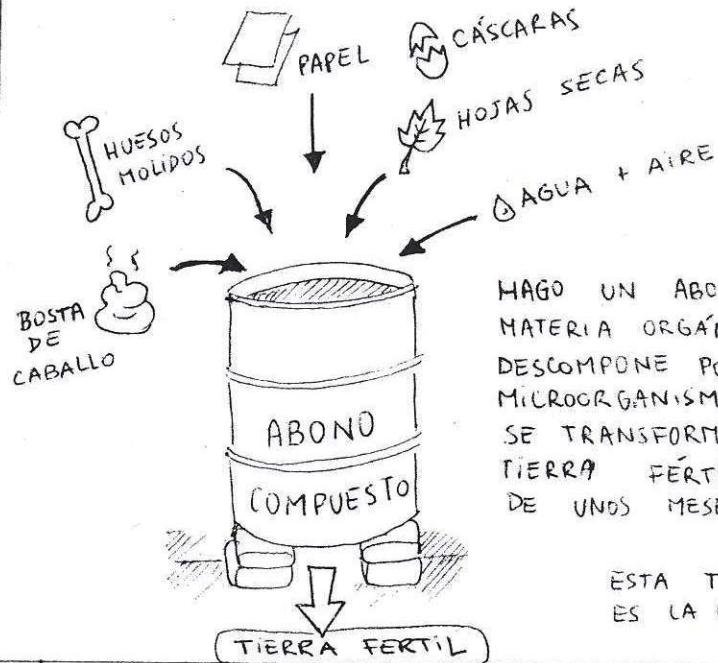 PAPEL
CÁSCARAS
HUESOS
MOLIDOS
HOJAS SECAS
AGUA + AIRE
BOSTA
DE
CABALLO
ABONO
COMPUESTO
TIERRA FERTIL
HAGO UN ABO
MATERIA ORGÁ
DESCOMPONE PO
MICROORGANISM
SE TRANSFORM
TIERRA FÉRT
DE UNOS MESE
ESTA T
ES LA